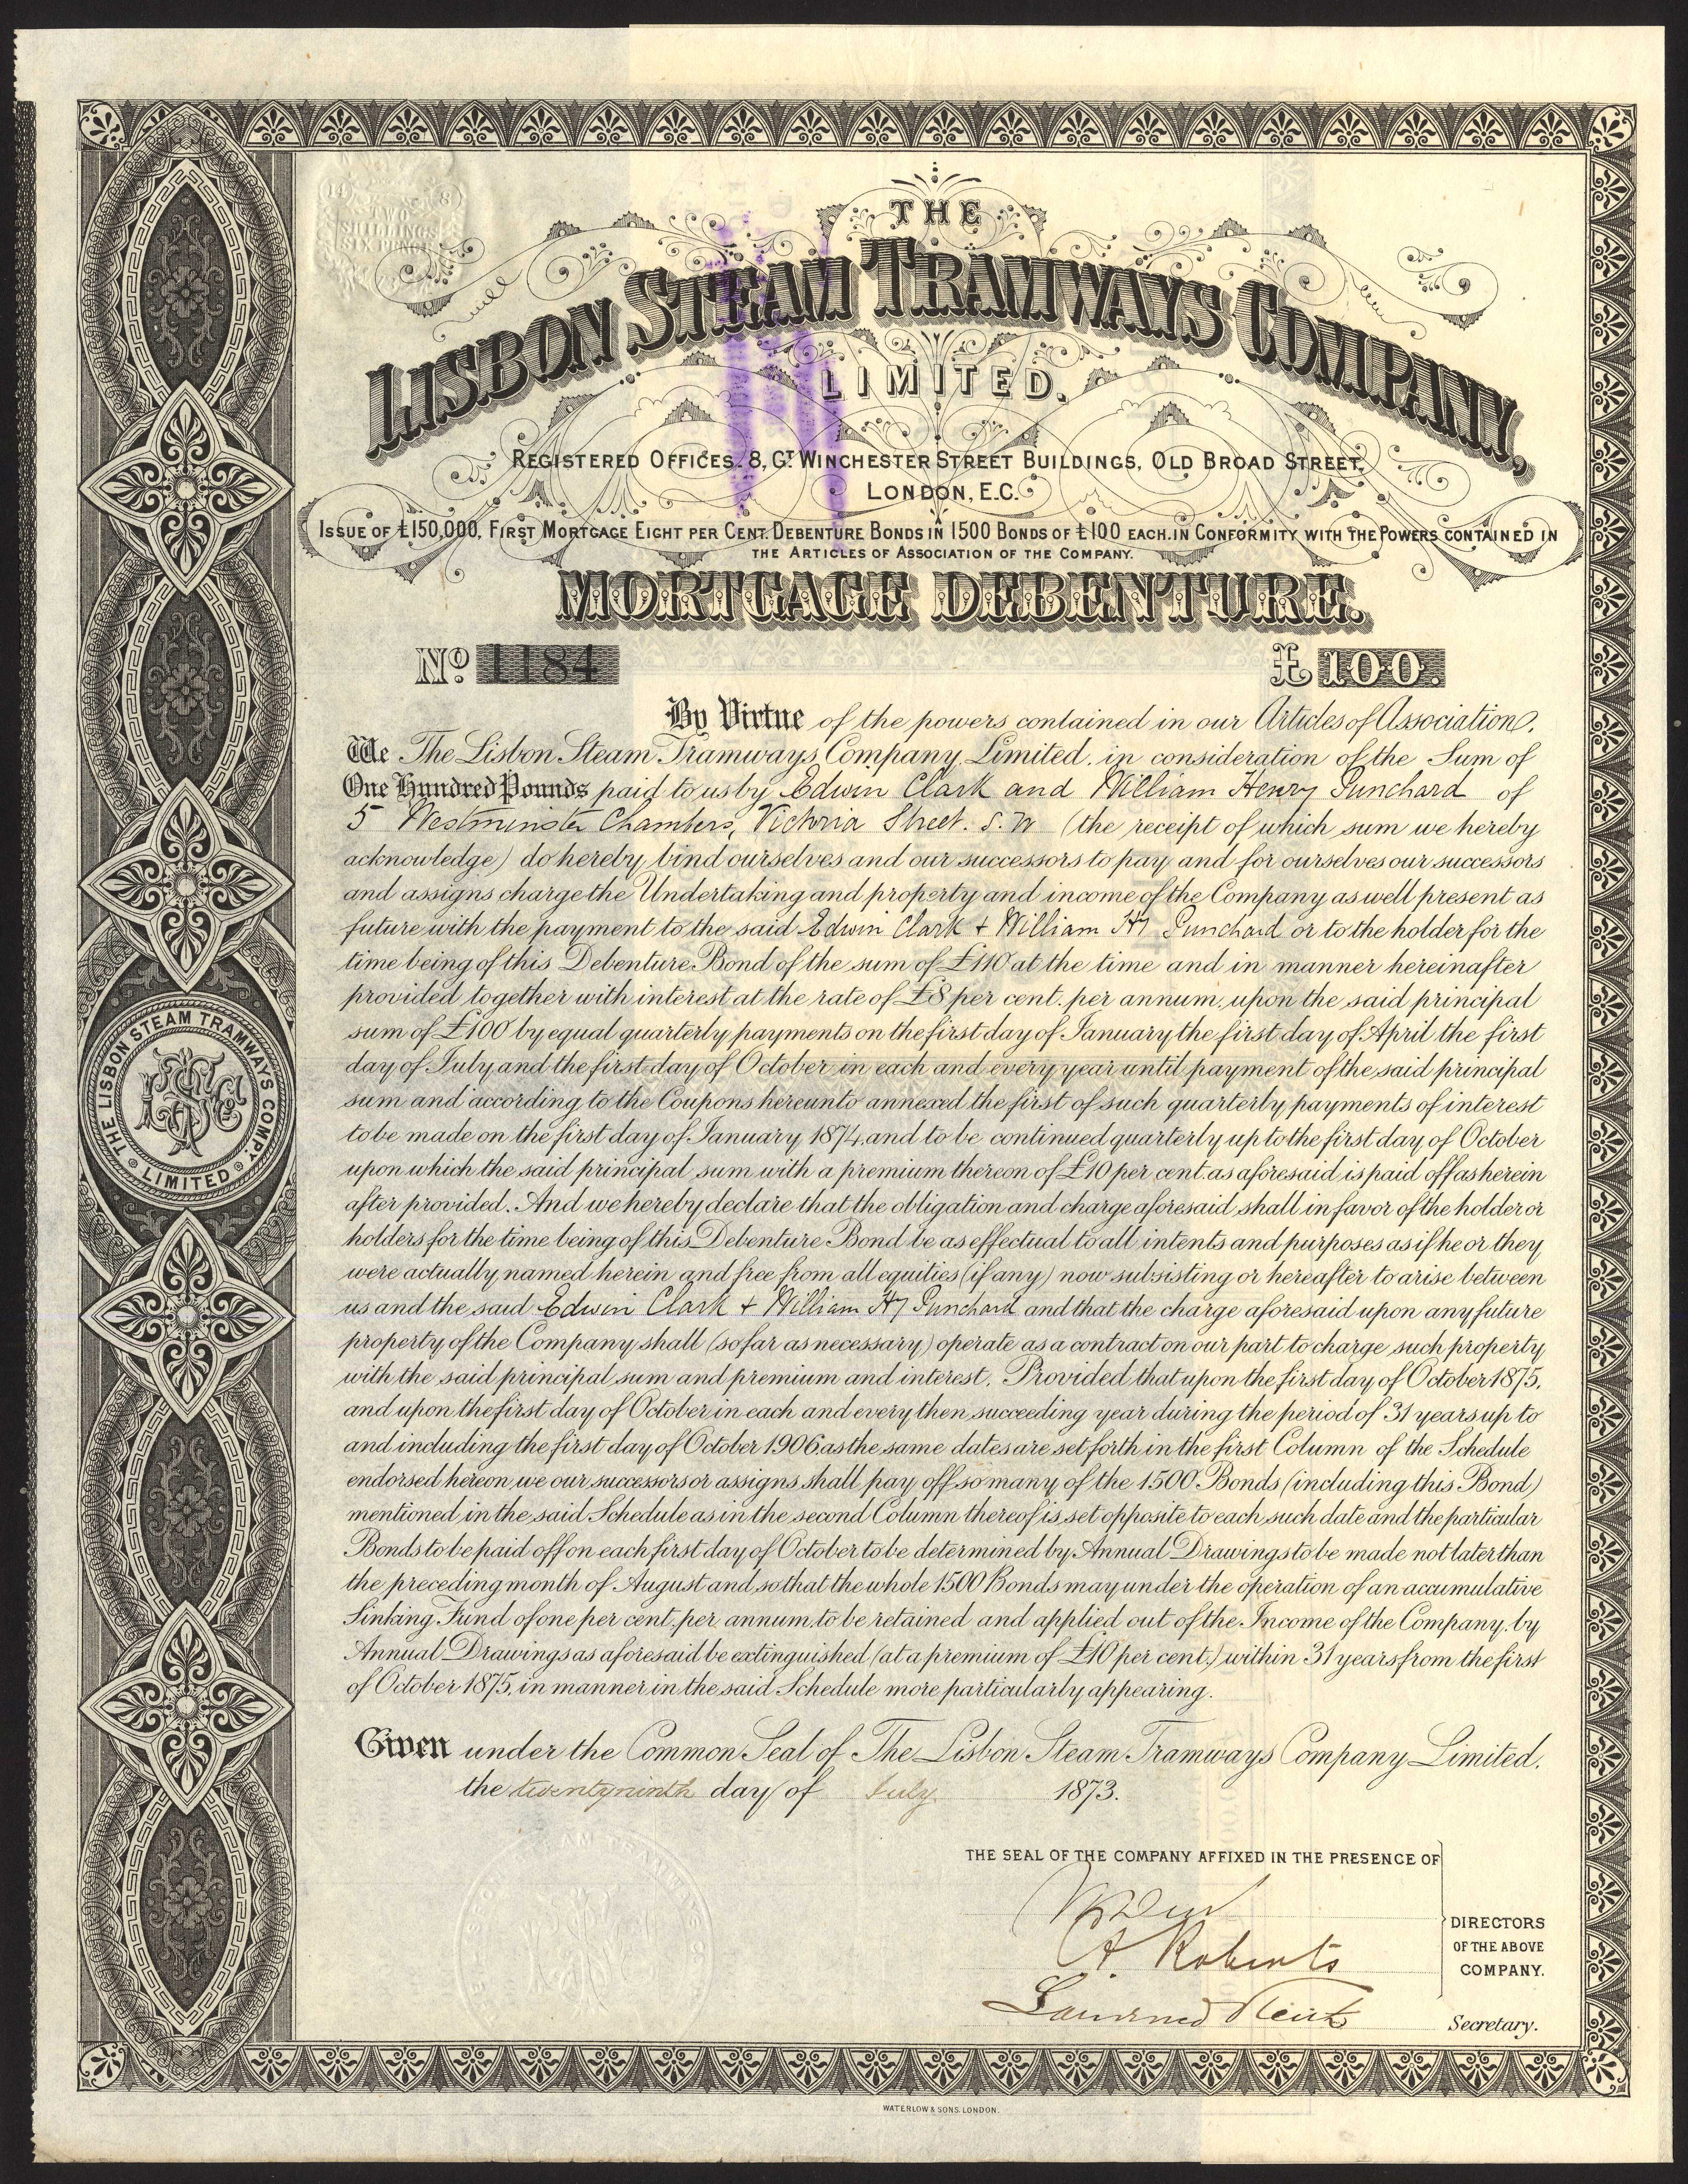 14
8
TWO
SHILLINGS
SIX PENCE
THE
LISBON STEAM TRAMWAYS COMPANY,
LIMITED.
REGISTERED OFFICES. 8, GT WINCHESTER STREET BUILDINGS, OLD BROAD STREET,
LONDON, E.C.
ISSUE OF £150,000, FIRST MORTGAGE EIGHT PER CENT. DEBENTURE BONDS IN 1500 BONDS OF £100 EACH. IN CONFORMITY WITH THE POWERS CONTAINED IN
THE ARTICLES OF ASSOCIATION OF THE COMPANY.
MORTGAGE DEBENTURE.
No 1184
£100.
By Virtue of the powers contained in our Articles of Association.
We The Lisbon Steam Tramways Company Limited, in consideration of the Sum of
One Hundred Pounds paid to us by Edwin Clark and William Henry Punchard of
5 Westminster Chambers, Victoria Street. S.W (the receipt of which sum we hereby
acknowledge) do hereby bind ourselves and our successors to pay and for ourselves our successors
and assigns charge the Undertaking and property and income of the Company as well present as
future with the payment to the said Edwin Clark + William Hy Punchard or to the holder for the
time being of this Debenture Bond of the sum of £110 at the time and in manner hereinafter
provided together with interest at the rate of £8 per cent. per annum, upon the said principal
sum of £100 by equal quarterly payments on the first day of January the first day of April the first
day of July and the first day of October in each and every year until payment of the said principal
sum and according to the Coupons hereunto annexed the first of such quarterly payments of interest
to be made on the first day of January 1874, and to be continued quarterly up to the first day of October
upon which the said principal sum with a premium thereon of £10 per cent. as aforesaid is paid off as herein
after provided. And we hereby declare that the obligation and charge aforesaid shall in favor of the holder or
holders for the time being of this Debenture Bond be as effectual to all intents and purposes as if he or they
were actually named herein and free from all equities (if any) now subsisting or hereafter to arise between
us and the said Edwin Clark + William Hy Punchard and that the charge aforesaid upon any future
property of the Company shall (so far as necessary) operate as a contract on our part to charge such property
with the said principal sum and premium and interest. Provided that upon the first day of October 1875,
and upon the first day of October in each and every then succeeding year during the period of 31 years up to
and including the first day of October 1906 as the same dates are set forth in the first Column of the Schedule
endorsed hereon we our successors or assigns shall pay off so many of the 1500 Bonds (including this Bond)
mentioned in the said Schedule as in the second Column thereof is set opposite to each such date and the particular
Bonds to be paid off on each first day of October to be determined by Annual Drawings to be made not later than
the preceding month of August and so that the whole 1500 Bonds may under the operation of an accumulative
Sinking Fund of one per cent. per annum, to be retained and applied out of the Income of the Company, by
Annual Drawings as aforesaid be extinguished (at a premium of £10 per cent.) within 31 years from the first
of October 1875, in manner in the said Schedule more particularly appearing.
Given under the Common Seal of The Lisbon Steam Tramways Company Limited.
the twentyninth day of July 1873.
THE SEAL OF THE COMPANY AFFIXED IN THE PRESENCE OF
A. Roberts
DIRECTORS
OF THE ABOVE
COMPANY.
Secretary.
THE LISBON STEAM TRAMWAYS COMPY.
LIMITED
WATERLOW & SONS. LONDON.